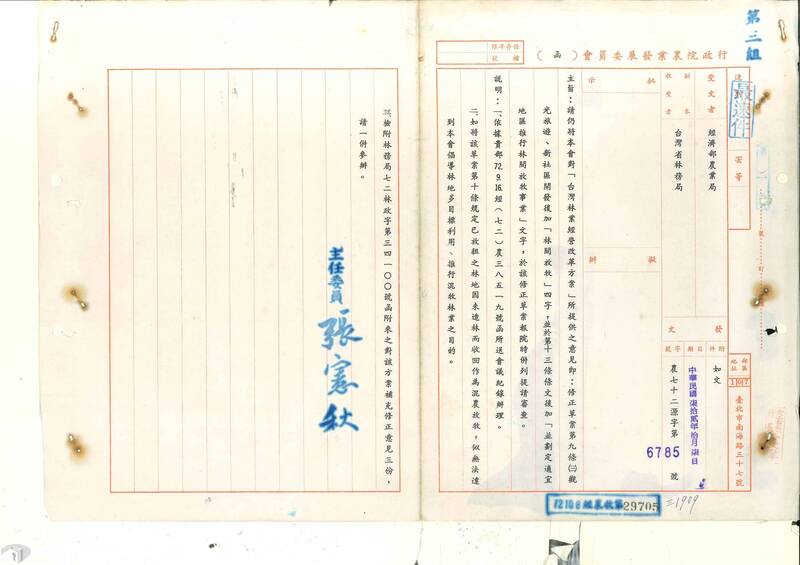 第三組
行政院農業發展委員會（函）
保存年限
檔號
最速件
受文者
經濟部農業局
副本收受者
台灣省林務局
批示
擬辦
發文
附件
如文
日期
中華民國柒拾貳年拾月柒日
字號
農七十二源字第
6785
號
郵區
107
地址
臺北市南海路三十七號
主旨：請仍將本會對「台灣林業經營改革方案」所提供之意見即：修正草案第九條㈢觀
光旅遊、新社區開發後加「林間放牧」四字，並於第十三條條文後加「並劃定適宜
地區推行林間放牧事業」文字，於該修正草案報院時併列提請審查。
說明：一、依據貴部72.9.16.經（七二）農三八五一九號函所送會議紀錄辦理。
二、如將該草案第十條規定已放租之林地因未造林而收回作為混農放牧，似無法達
到本會倡導林地多目標利用、推行混牧林業之目的。
三、檢附林務局七二林政字第三四一〇〇號函附來之對該方案補充修正意見三份，
請一併參辦。
主任委員 張憲秋
72.10.8經農收第29705